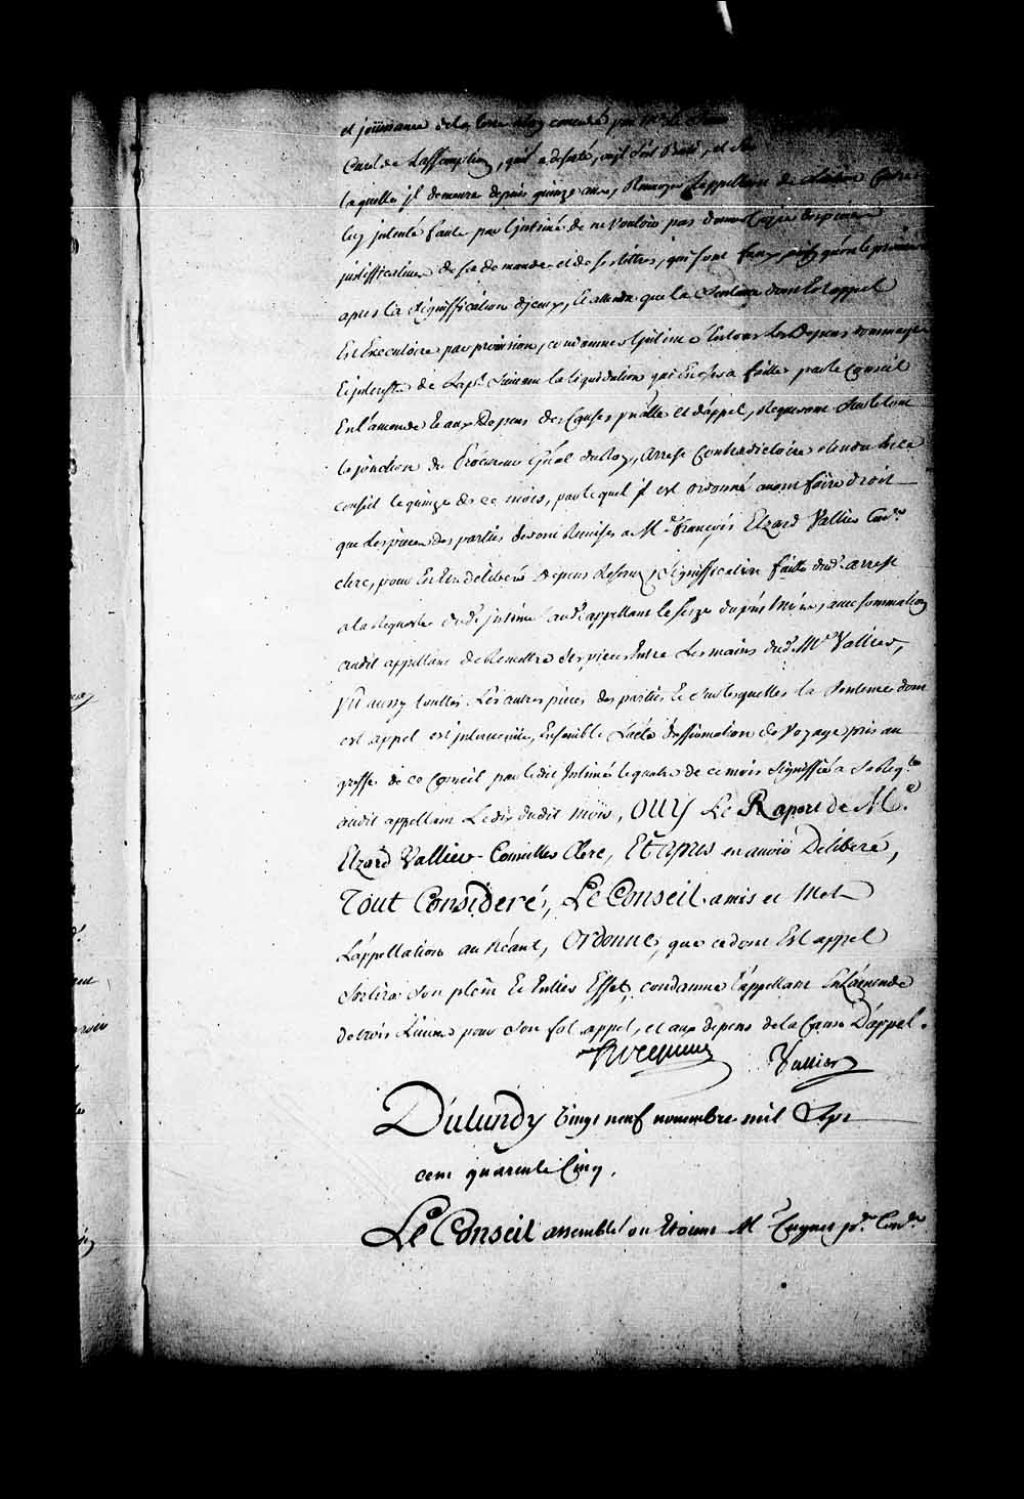 et joüissance de la terre concedé par Mr le
Curé de Lassomption, qu'il a deserté, ou il s'est Bati, et sur
laquelle jl demeure depuis quinze ans, Renvoyer l'appellant de l'action Contre
luy jntenté faute par l'jntimé de ne vouloir pas donner Copie des pieces
justifficatives de sa demande et de ses tittres, qui sont faux, puisqu'on le
apres la signiffication d'jceux, Et attendu que la Sentence dont Est appel
Est Executoire par provision, condamner l'jntimé En tous Les Depens dommages
Et jnterests de Lapt. suivant la liquidation qui En sera faitte par le Conseil
En l'amende Et aux Depens des Causes pnalle et d'appel, Requerant sur le tout
la jonction du Procureur Gñal du Roy, Arrest Contradictoire rendu En ce
conseil le quinze de ce mois, par lequel jl est ordonné avant faire droit
que Les pieces des parties seront Remises a Mr. François Elzard Vallier Coner.
clerc, pour En Etre deliberé Depens Reservez, Signiffication faitte dud. arrest
a la Requeste dud. jntimé aud. appellant le seize du pñt mois, avec sommation
audit appellant de Remettre ses pieces Entre Les mains dud. Mr Vallier,
Vû aussy touttes Les autres pieces des parties Et sur lesquelles la Sentence dont
est appel est jntervenüe, Ensemble L'acte d'affirmation de Voyage pris au
greffe de ce Conseil par ledit Jntimé le quatre de ce mois signiffié a sa Reqte.
audit appellant Le dix dudit mois, OUY Le Raport de Me.
Elzard Vallier Conseiller Clerc, Et apres en avoir Deliberé,
Tout Consideré, Le Conseil a mis et Met
L'appellation au Néant, Ordonne, que ce dont Est appel
Sortira son plein Et Entier Effet, condamne l'appellant En L'amende
de trois Livres pour son fol appel, et aux depens de la Cause D'appel.
Hocquart Vallier
Du lundy Vingt neuf novembre mil Sept
cent quarente Cinq.
Le Conseil assemblé ou Etoient Me Cugnet pr. Coner.